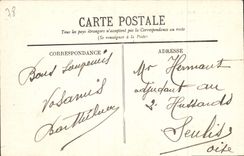 28
CARTE POSTALE
Tous les pays étrangers n'acceptent pas la Correspondance au recto
(Se renseigner à la Poste)
CORRESPONDANCE
ADRESSE
Bons Souvenirs
Vos amis
Barthélemy
Mr Hermant
adjudant au
2e Hussards
Senlis
Oise